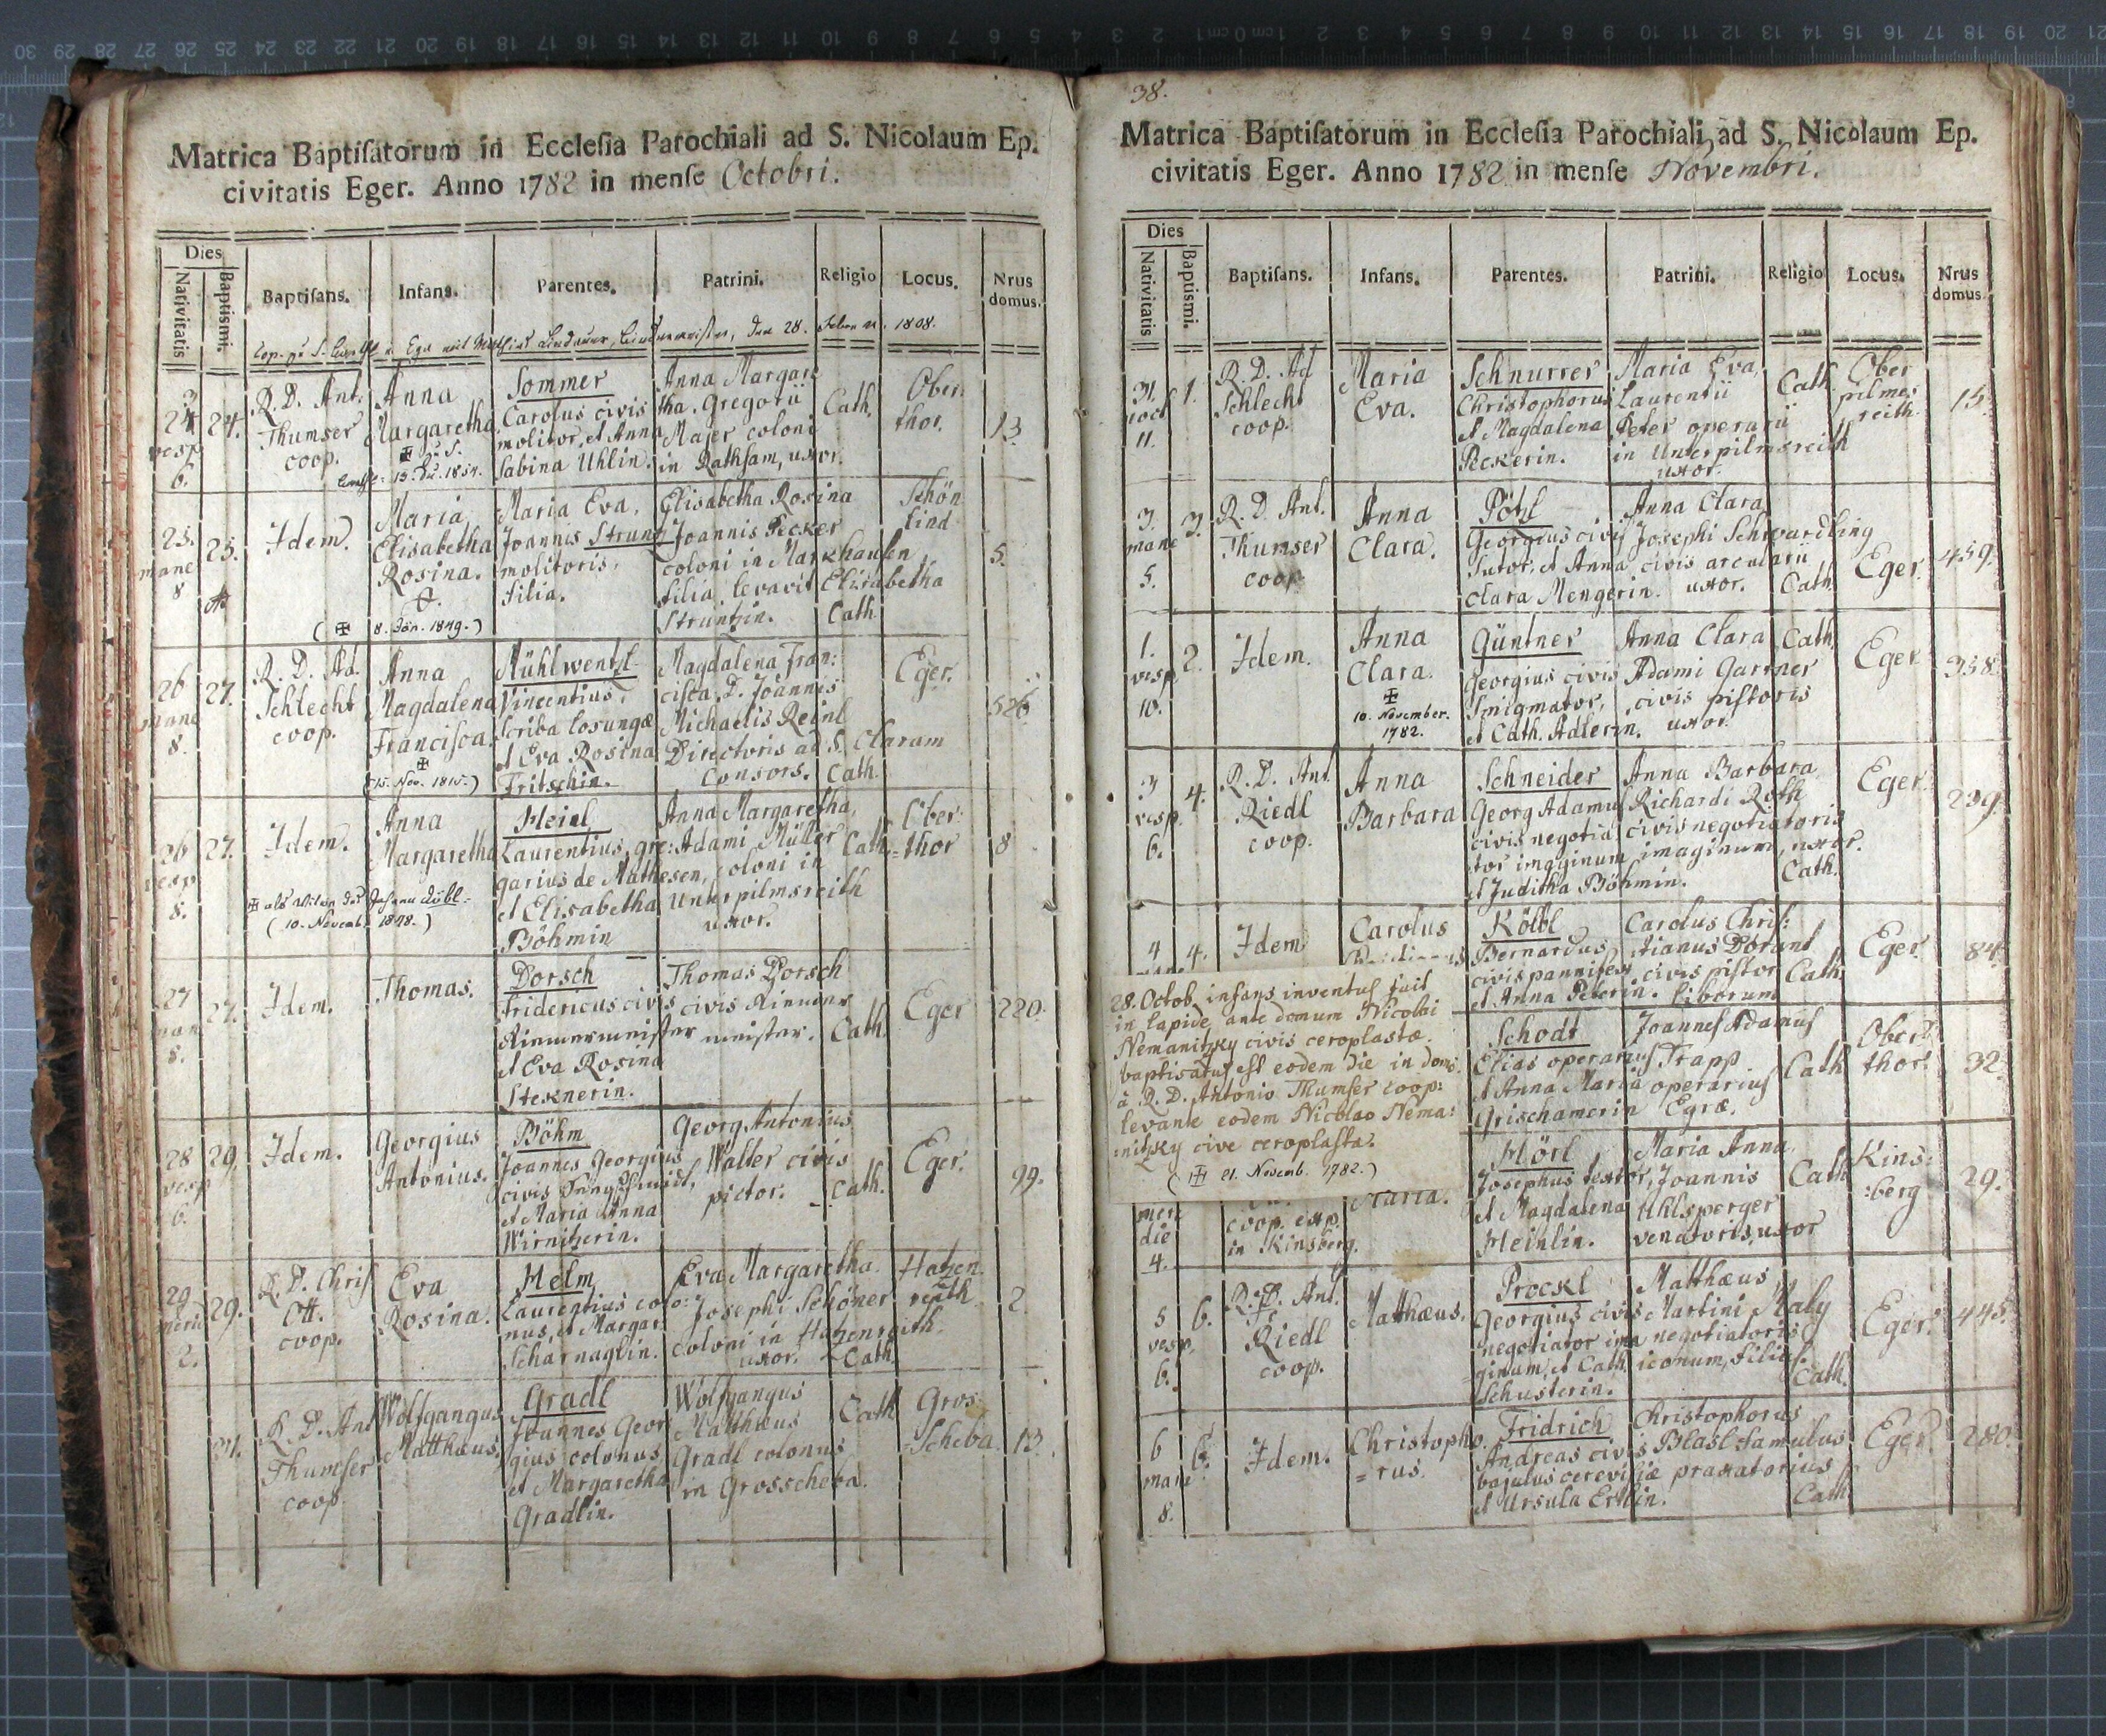 Matrica Baptiſatorum in Eccleſia Parochiali ad S. Nicolaum Ep.
civitatis Eger. Anno 1782 in menſe Octobri.
Dies
Nativitatis
Baptiſmi.
Baptiſans.
Infans.
Parentes.
Patrini.
Religio
Locus.
Nrus
domus.
den 28. 1808.
24
vesp
6.
24.
R. D. Ant.
Thumser
coop.
Anna
Margaretha
Sommer
Carolus civis
molitor, et Anna
Sabina Uhlin.
Anna Margare
tha, Gregorii
Majer coloni
in Rathsam, uxor.
Cath.
Ober:
thor.
13.
25.
mane
8
25.
Idem.
Maria
Elisabetha
Rosina.
(✠ 8. Jän. 1849.)
Maria Eva,
Joannis Strunz
molitoris,
filia.
Elisabetha Rosina
Joannis Pecker
coloni in Markhausen
filia, levavit Elisabetha
Struntzin.
Cath.
Schön
lind
5.
26
mane
8.
27.
R. D. Ad.
Schlecht
coop.
Anna
Magdalena
Francisca.
✠
(15. Nov. 1815.)
Mühlwentzl
Vincentius,
scriba losungæ
et Eva Rosina
Fritschin.
Magdalena Fran:
cisca, D. Joannis
Michaelis Reinl
Directoris ad S. Claram
consors.
Cath.
Eger.
526.
26
vesp
8.
27.
Idem.
Anna
Margaretha
(10. Novemb. 1848.)
Heinl
Laurentius, gre:
garius de Mathesen,
et Elisabetha
Böhmin
Anna Margaretha,
Adami Müller
coloni in
Unterpilmsreith
uxor.
Cath.
Ober:
thor
8
27
man
8.
27.
Idem.
Thomas.
Dorsch
Fridericus civis
Riemermeister
et Eva Rosina
Steknerin.
Thomas Dorsch
civis Riemer
meister.
Cath.
Eger
220.
28
vesp
6.
29.
Idem.
Georgius
Antonius.
Böhm
Joannes Georgius
civis
et Maria Anna
Wirnitzerin.
Georg Antonius
Walter civis
pictor.
Cath.
Eger.
99.
29
meri
2.
29.
R. D. Chris
Ott.
coop.
Eva
Rosina.
Helm
Laurentius colo:
nus, et Margar.
Scharnaglin.
Eva Margaretha
Josephi Schöner
coloni in Hatzenreith
uxor.
Cath.
Hatzen
reith
2.
31.
R. D. Ant
Thumser
coop.
Wolfgangus
Matthæus.
Gradl
Joannes Geor
gius colonus
et Margaretha
Gradlin.
Wolfgangus
Matthæus
Gradl colonus
in Grosscheba.
Cath
Gros
Scheba.
13.
38.
Matrica Baptiſatorum in Eccleſia Parochiali ad S. Nicolaum Ep.
civitatis Eger. Anno 1782 in menſe Novembri.
Dies
Nativitatis
Baptiſmi.
Baptiſans.
Infans.
Parentes.
Patrini.
Religio
Locus.
Nrus
domus
31.
noct
11.
1.
R. D. Ad
Schlecht
coop.
Maria
Eva.
Schnurrer
Christophorus
et Magdalena
Peckerin.
Maria Eva,
Laurentii
Peter operarii
in Unterpilmsreith
uxor.
Cath.
Ober
pilmes
reith.
15.
3.
mane
5.
3.
R. D. Ant.
Thumser
coop.
Anna
Clara.
Pöhl
Georgius civis
sutor, et Anna
Clara Mengerin.
Anna Clara
Josephi Schwardling
civis arcularii
uxor.
Cath.
Eger.
459.
1.
vesp
10.
2.
Idem.
Anna
Clara.
✠
10. November.
1782.
Güntner
Georgius civis
Smigmator,
et Cath. Adlerin.
Anna Clara
Adami Gartner
civis pistoris
uxor.
Cath.
Eger
358.
3
vesp.
6.
4.
R. D. Ant.
Riedl
coop.
Anna
Barbara
Schneider
Georg Adamus
civis negotia
tor imaginum
et Juditha Böhmin.
Anna Barbara
Richardi Roth
civis negotiatoris
imaginum, uxor.
Cath.
Eger.
239.
4
4.
Idem
Carolus
Kölbl
Bernardus
civis pannifex
et Anna Peterin.
Carolus Chris:
tianus Dorant
civis pistor
liborum
Cath.
Eger.
84.
28. Octob. infans inventus fuit
in lapide ante domum Nicolai
Nemanitzky civis ceroplastæ.
baptisatus est eodem die in domo
à R. D. Antonio Thumser coop:
levante eodem Nicolao Nema:
nitzky cive ceroplasta.
(✠ 21. Novemb. 1782.)
Schodt
Elias operarius
et Anna Maria
Grischamerin
Joannes Adamus
Trapp
operarius
Egræ.
Cath
Ober
thor.
32.
meri
die
4.
coop. exp.
in Kinsberg.
Maria.
Hörl
Josephus textor,
et Magdalena
Heinlin.
Maria Anna
Joannis
Uhlsperger
venatoris, uxor
Cath
Kins:
:berg
29.
5
vesp.
6.
6.
R. D. Ant.
Riedl
coop.
Matthæus.
Prockl
Georgius civis
negotiator ima
ginum, et Cath.
Schusterin.
Matthæus
Martini Maly
negotiatoris
iconum, filius.
Cath.
Eger.
445.
6
mane
8.
6.
Idem.
Christopho
=rus.
Fridrich
Andreas civis
bajulus cerevisiæ
et Ursula Ertlin.
Christophorus
Blasl famulus
praxatorius
Cath
Eger
280.